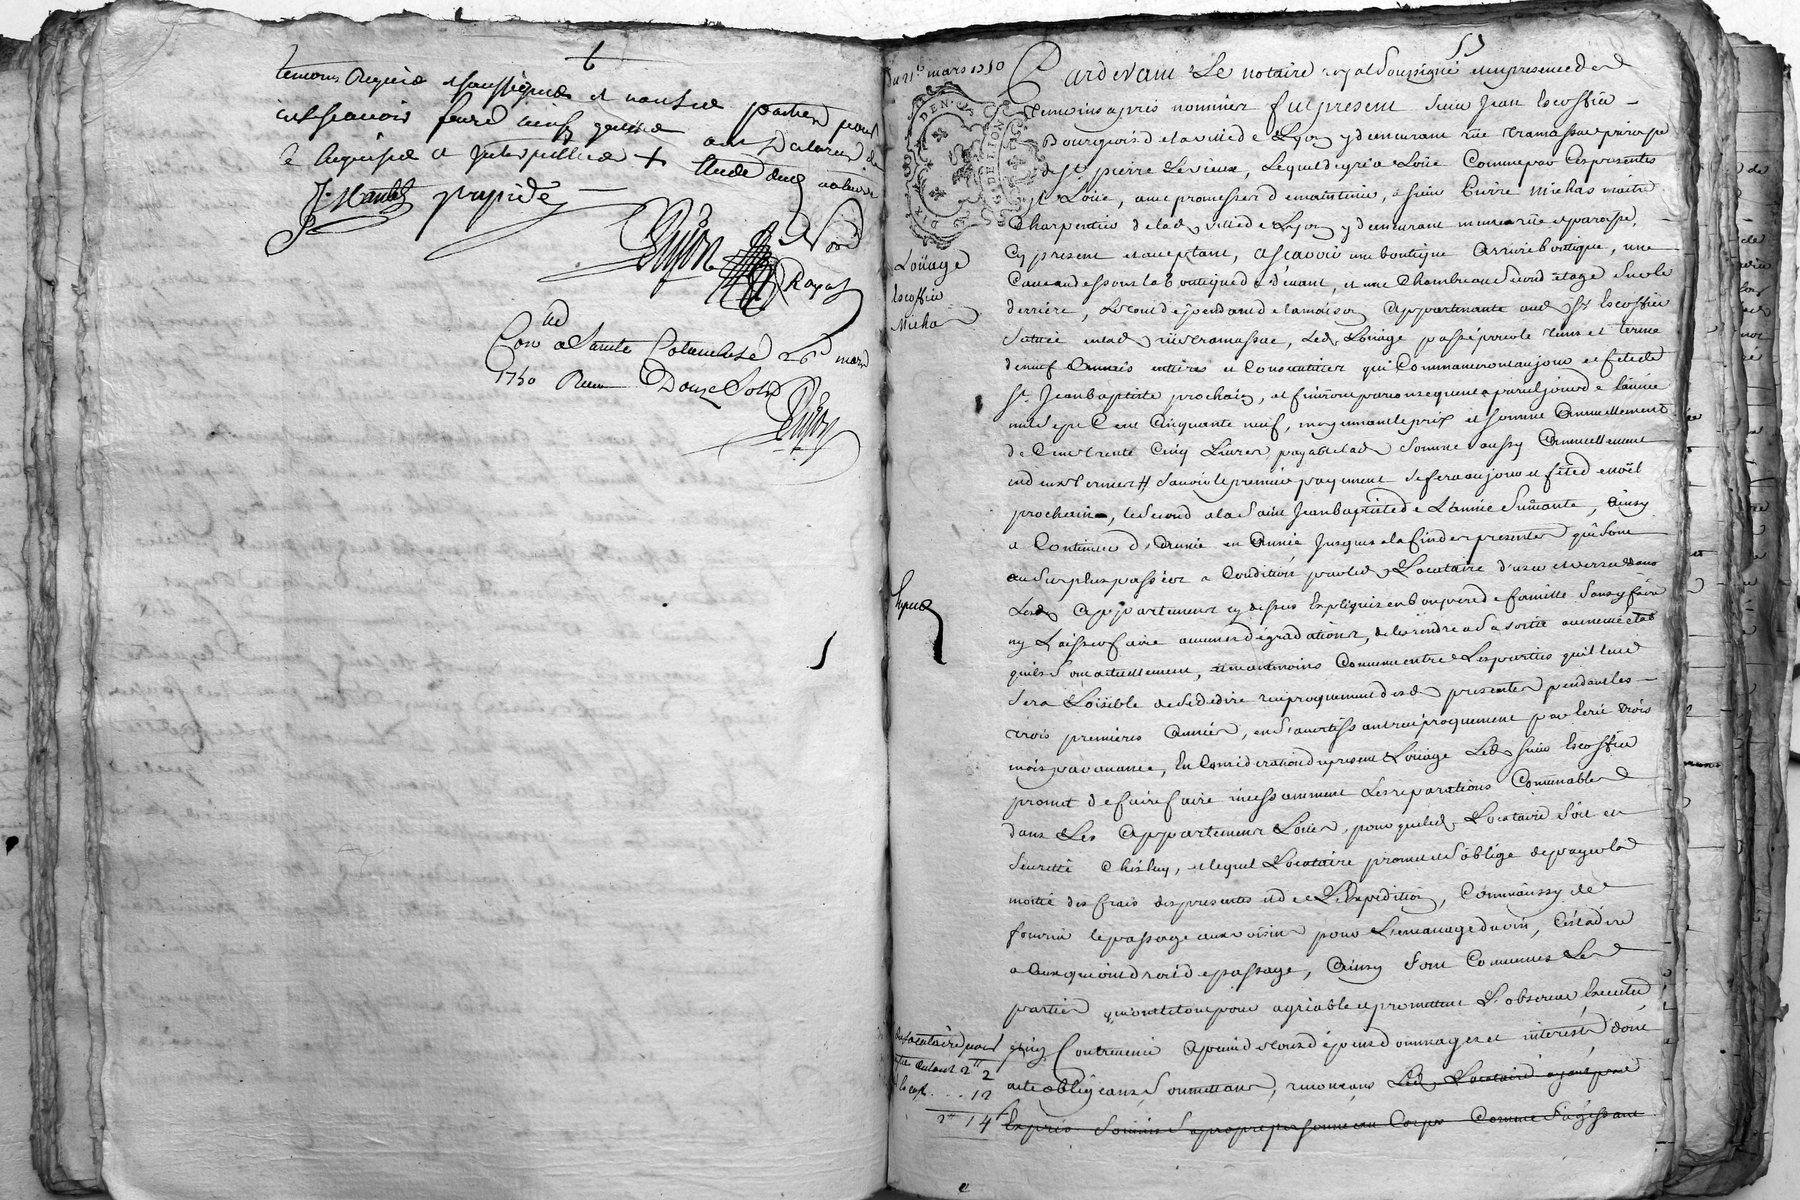 temoins requis et soussignés et non led. partie pour
ne scavoir
de ce requise et interpellée + 
J. Mantel
Dujon No.re
Royal
Con.lé a Sainte Colombe le 26.e mars
1750 Reçu Douze Sols
Dujon
Du 21.e mars 1750
Pardevant Le notaire royal soussigné et en presence des
temoins apres nommés fut present sieur Jean Escoffier
Bourgeois de la ville de Lyon y demeurant rue tramassac paroisse
de St. pierre Le vieux, Lequel de gré a Loüé Comme par Ces presentes
il Loüe, avec promesse de maintenir, a sieur Pierre Michas maitre
Charpentier de lad. ville de Lyon y demeurant meme rüe et paroisse,
Cy present et acceptant, a sçavoir une boutique arriere boutique, une
Cave au dessous la boutique de devant, et une Chambre au second étage sur le
derriere, Le tout dependant de la maison appartenante aud. Sr. Escoffier
Située en lad. rüe tramassac, Led. Loüage passé pour le tems et terme
de neuf années entieres et Consecutives qui Commenceront au jour et fete de
St. Jean baptiste prochain, et finiront par consequent a pareil jour de l'année
mil sept Cent Cinquante neuf, moyennant le prix et somme annuellement
de Cent trente Cinq Livres payable lad. somme aussy annuellement
en deux termes # sçavoir le premier payement se fera au jour et fête de noël
prochain, le second a la saint Jean baptiste de L'année suivante, ainsy
a Continuer d'année en année jusques a la fin des presentes qui sont
au surplus passées a Condition pour led. Locataire d'user et verser dans
Lesd. appartements cy dessus expliqués en bon pere de famille sans y faire
ny Laisser faire aucunes dégradations, de les rendre a sa sortie au meme état
qu'ils sont actuellement, neantmoins Convenu entre Les parties qu'il leur
sera Loisible de se dedire reciproquement desd. presentes pendant les
trois premieres années, en s'avertissant reciproquement par Ecrit trois
mois par avance, En Consideration du present Loüage Led. sieur Escoffier
promet de faire faire incessamment Les reparations Convenables
dans Les appartements Loués, pour que led. Locataire soit en
seureté Chés luy, et lequel Locataire promet et s'oblige de payer la
moitié des frais des presentes et de L'Expedition, Comme aussy de
fournir le passage aux voisins pour L'emmenage du vin, C'est a dire
a Ceux qui ont droit de passage, ainsy sont Convenues Les
parties qui ont le tout pour agréable et promettent L'observer, Executer
et n'y Contrevenir a peine de tous dépens dommages et interets dont
acte obligeans, soumettans, renonceans Led. Locataire ayant pour
Exprés soumis sa propre personne au Corps Comme s'agissant
Loüage
Escoffier
Micha
du locataire pour
2
12
14